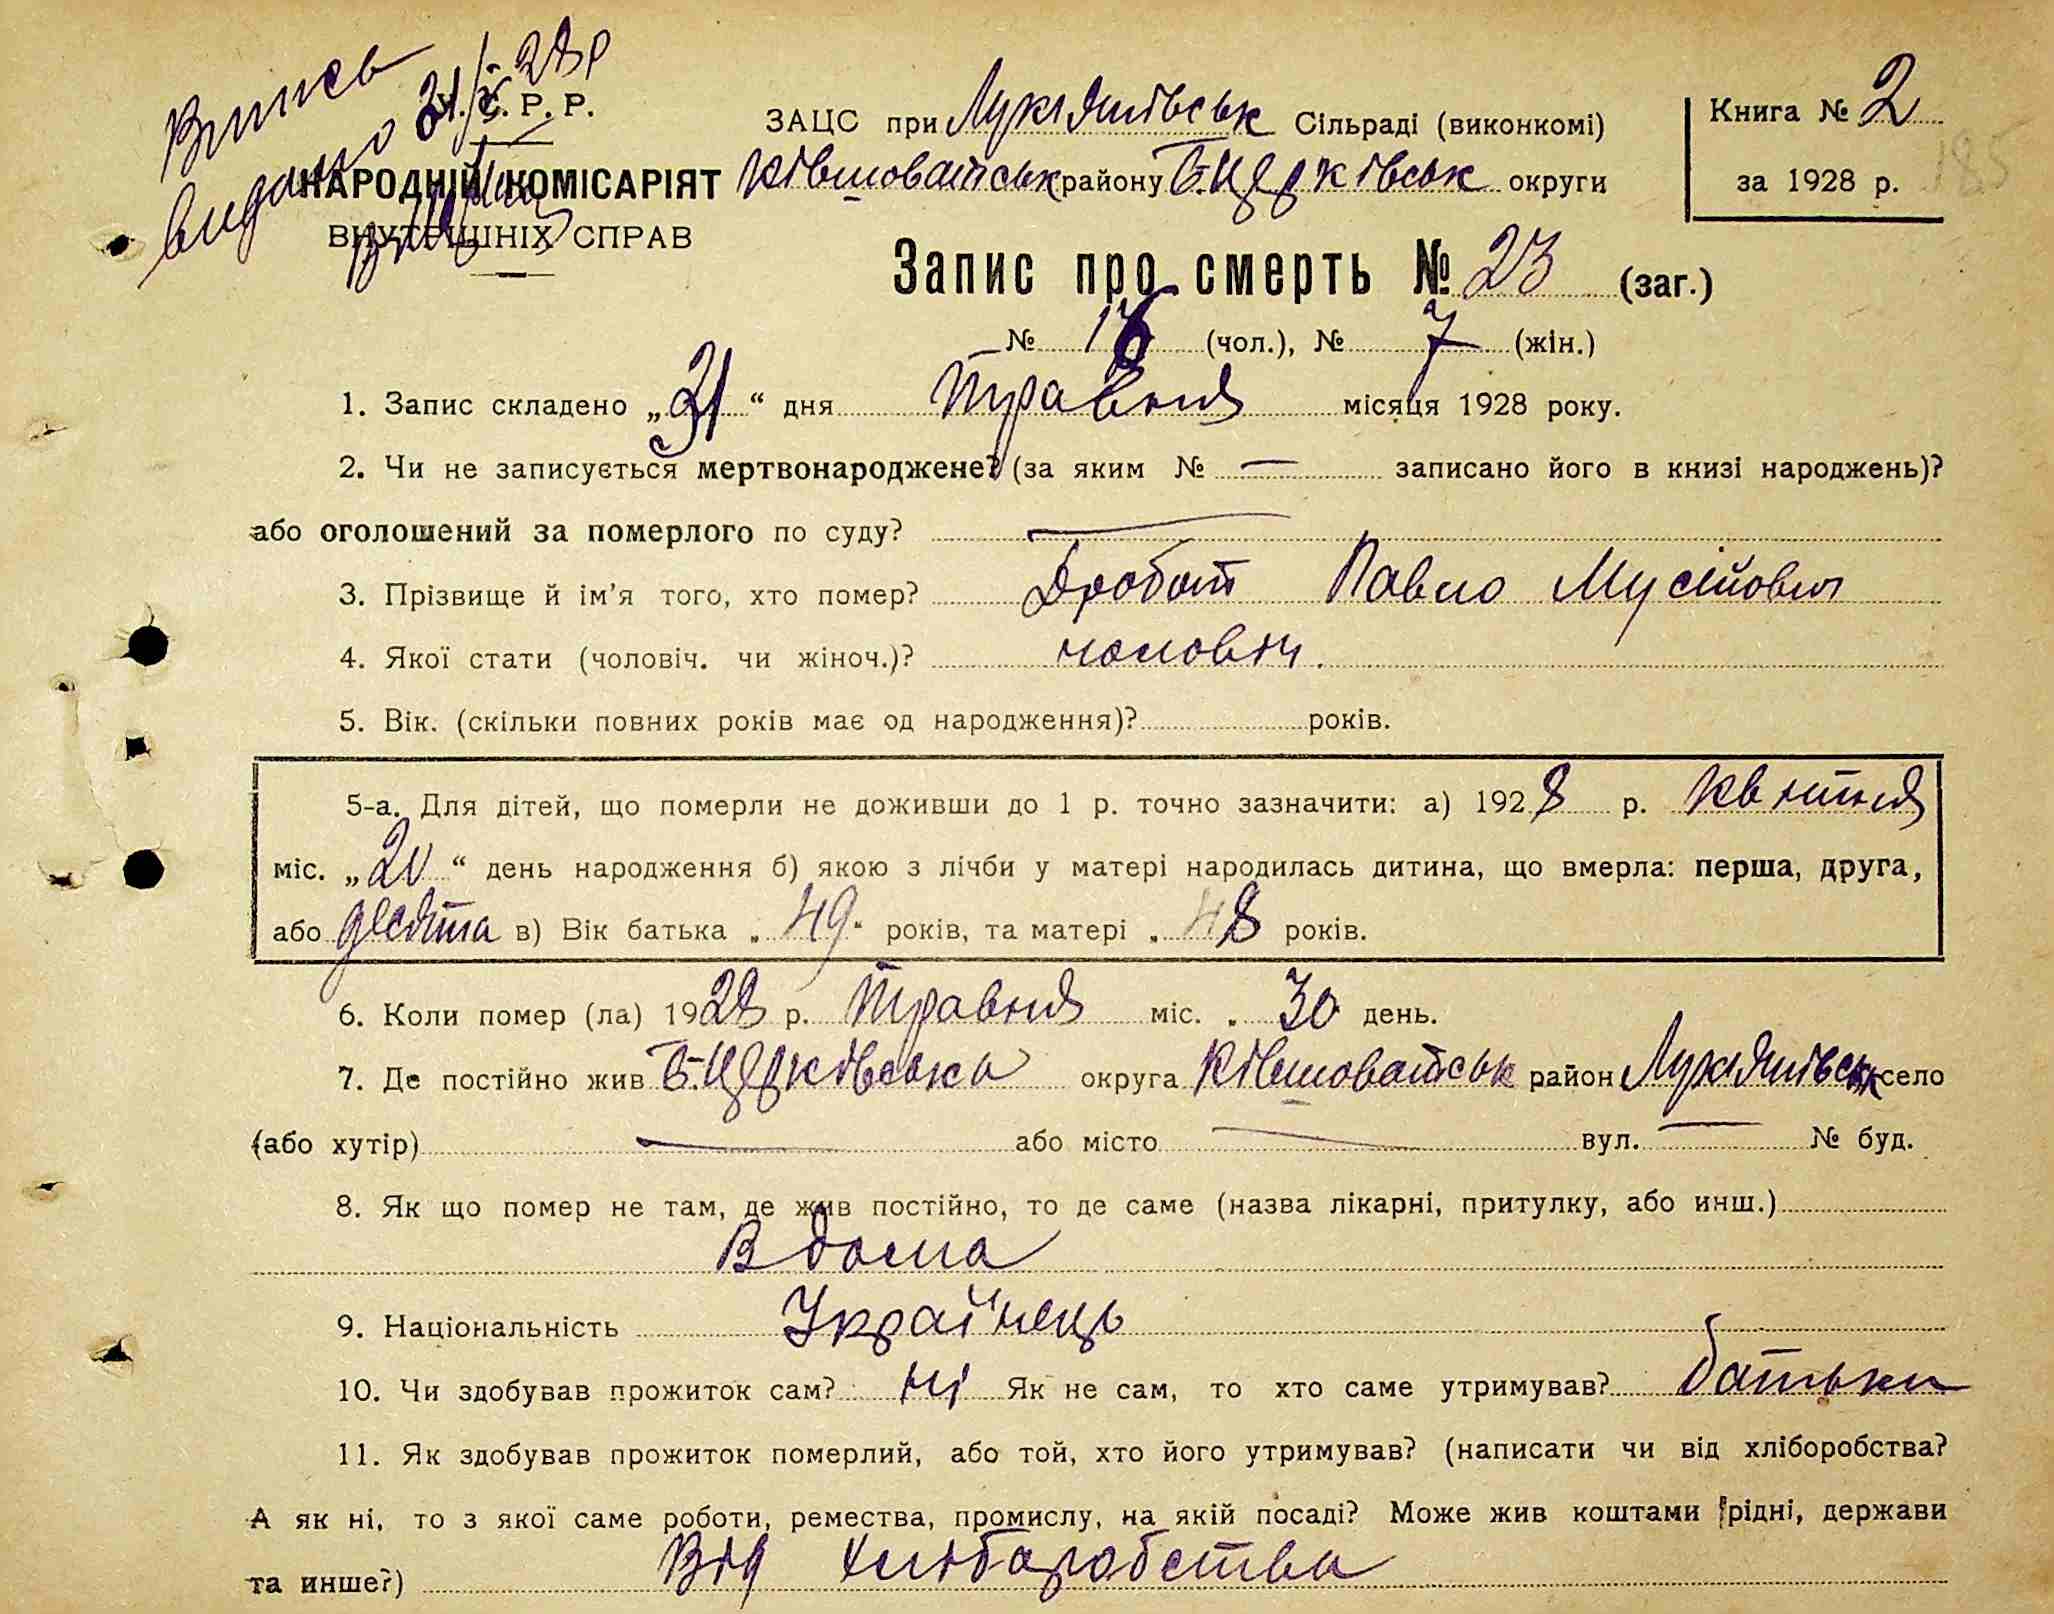 Випись
видано 31/V 28р
У. С. Р. Р.
НАРОДНІЙ КОМІСАРІЯТ
ВНУТРІШНІХ СПРАВ
ЗАЦС при Лукіянівськ Сільраді (виконкомі)
Ківшоватськ району Б-Церківськ округи
Книга № 2
за 1928 р.
185
Запис про смерть № 23 (заг.)
№ 16 (чол.), № 7 (жін.)
1. Запис складено „31“ дня Травня місяця 1928 року.
2. Чи не записується мертвонароджене? (за яким № — записано його в книзі народжень)?
або оголошений за померлого по суду? —
3. Прізвище й ім'я того, хто помер? Дробот Павло Мусійович
4. Якої стати (чоловіч. чи жіноч.)? чоловіч.
5. Вік. (скільки повних років має од народження)? років.
5-а. Для дітей, що померли не доживши до 1 р. точно зазначити: а) 1928 р. квітня
міс. „20“ день народження б) якою з лічби у матері народилась дитина, що вмерла: перша, друга,
або десята в) Вік батька „49“ років, та матері „48 років.
6. Коли помер (ла) 1928 р. Травня міс. „30 день.
7. Де постійно жив Б-Церківська округа Ківшоватськ район Лукіянівськ село
(або хутір) — або місто — вул. — № буд.
8. Як що помер не там, де жив постійно, то де саме (назва лікарні, притулку, або инш.)
Вдома
9. Національність Українець
10. Чи здобував прожиток сам? ні Як не сам, то хто саме утримував? батьки
11. Як здобував прожиток померлий, або той, хто його утримував? (написати чи від хліборобства?
А як ні, то з якої саме роботи, ремества, промислу, на якій посаді? Може жив коштами рідні, держави
та инше?) Від хліборобства